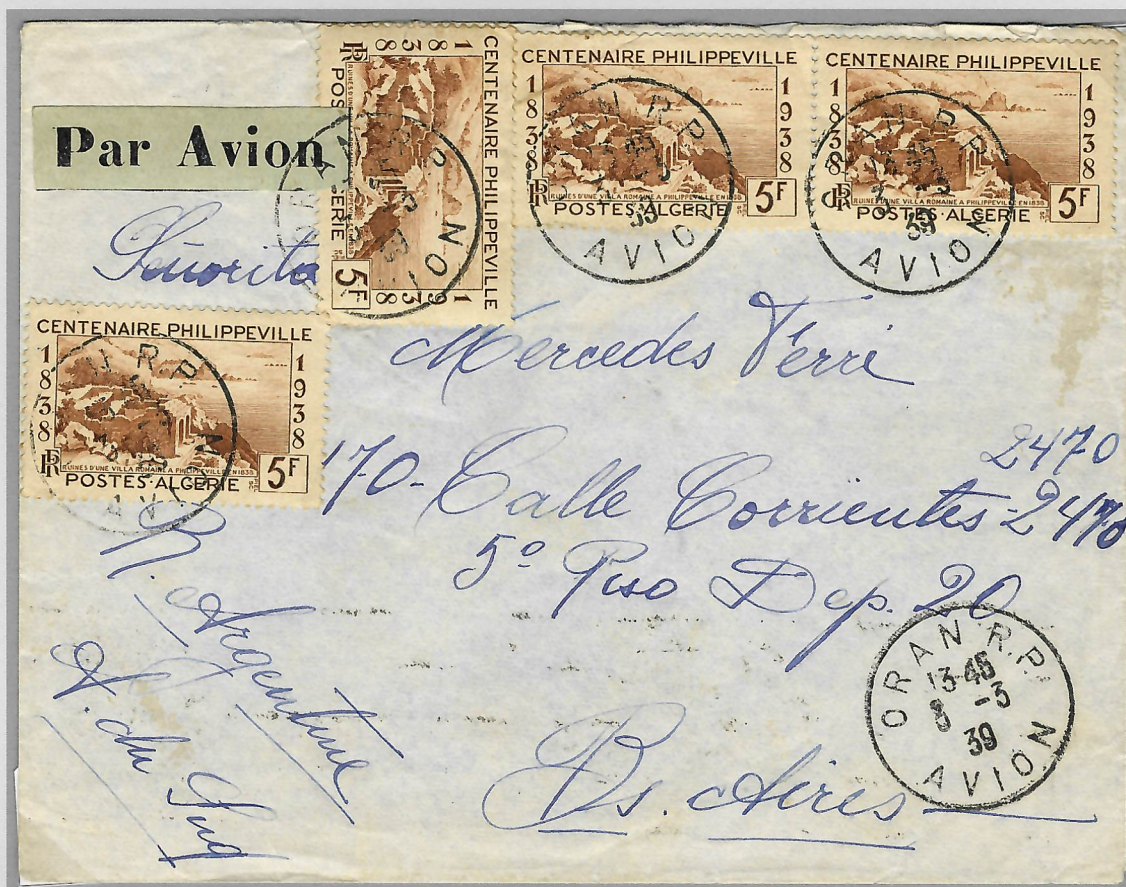 CENTENAIRE PHILIPPEVILLE
1838 1938
RUINES D'UNE VILLA ROMAINE A PHILIPPEVILLE EN 1838
RF POSTES·ALGERIE 5F
CENTENAIRE PHILIPPEVILLE
1838 1938
RUINES D'UNE VILLA ROMAINE A PHILIPPEVILLE EN 1838
RF POSTES·ALGERIE 5F
CENTENAIRE PHILIPPEVILLE
1838 1938
RUINES D'UNE VILLA ROMAINE A PHILIPPEVILLE EN 1838
RF POSTES·ALGERIE 5F
ORAN R.P.
39
AVION
Par Avion
Señorita
CENTENAIRE PHILIPPEVILLE
1838 1938
RUINES D'UNE VILLA ROMAINE A PHILIPPEVILLE EN 1838
RF POSTES·ALGERIE 5F
Mercedes
2470
170- Calle Corrientes-2470
5º Piso Dep. 20
Argentine
du Sud
Bs. Aires
ORAN R.P.
13-45
8 -3
39
AVION